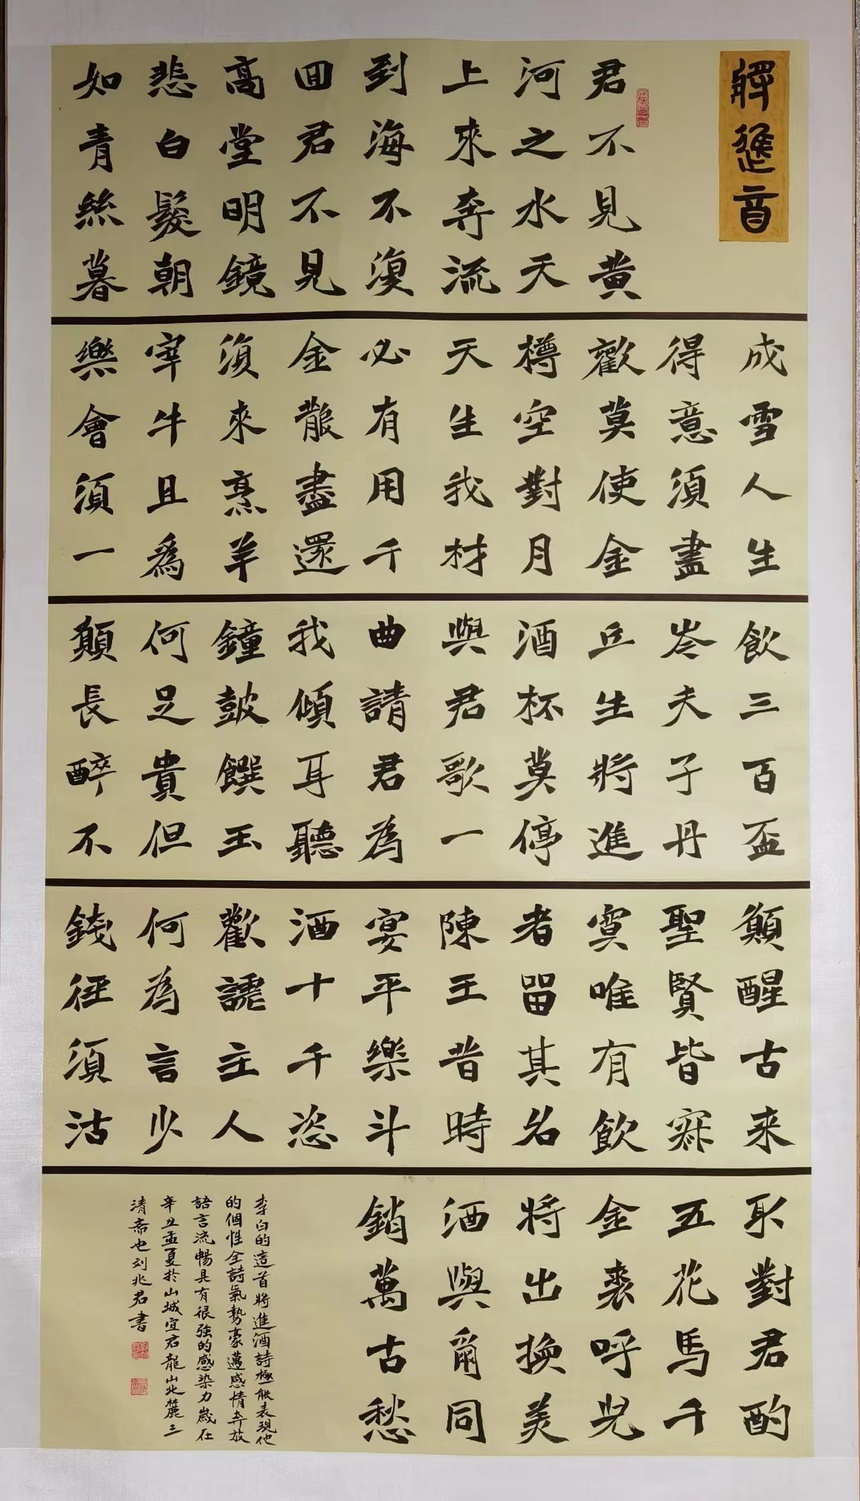 將進酉
君不見黄
河之水天
上來奔流
到海不復
回君不見
高堂明鏡
悲白髮朝
如青絲暮
成雪人生
得意須盡
歡莫使金
樽空對月
天生我材
必有用千
金散盡還
復來烹羊
宰牛且為
樂會須一
飲三百盃
岑夫子丹
丘生將進
酒杯莫停
與君歌一
曲請君為
我傾耳聽
鐘鼓饌玉
何足貴但
願長醉不
願醒古来
聖賢皆寂
寞唯有飲
者留其名
陳王昔時
宴平樂斗
酒十千恣
歡謔主人
何為言少
錢徑須沽
取對君酌
五花馬千
金裘呼兒
將出換美
酒與爾同
銷萬古愁
李白的這首將進酒詩極一般表現他
的個性全詩氣勢豪邁感情奔放
語言流暢具有很強的感染力歲在
辛丑孟夏於山城宜君龍山北麓三
清斋也刘兆君書